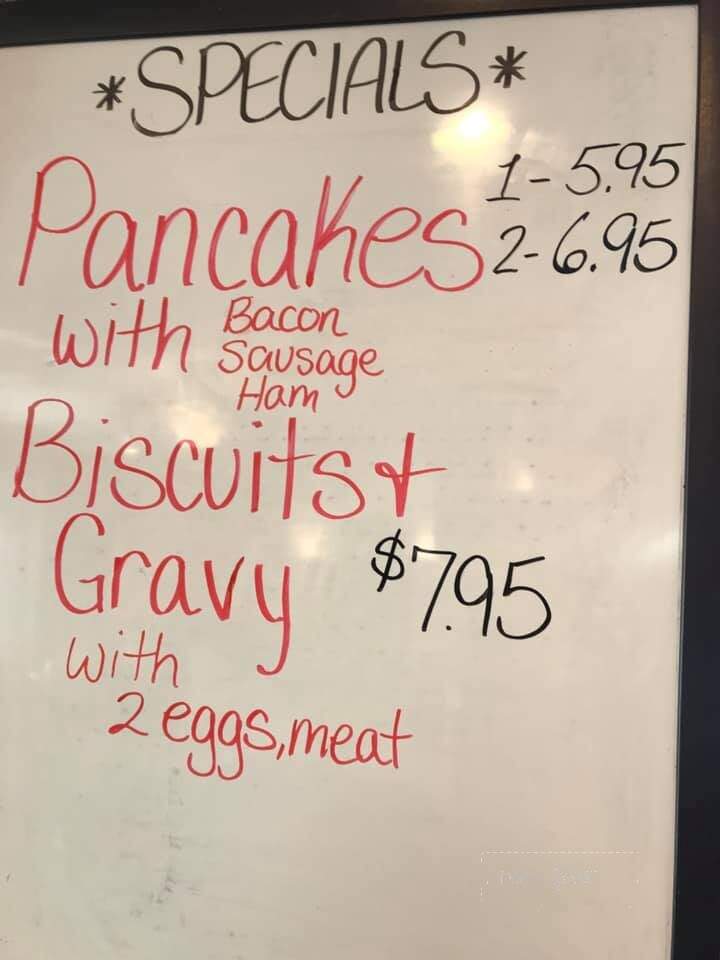 *SPECIALS*
Pancakes 1-5.95
2-6.95
with Bacon
Sausage
Ham
Biscuits &
Gravy $7.95
with
2 eggs, meat